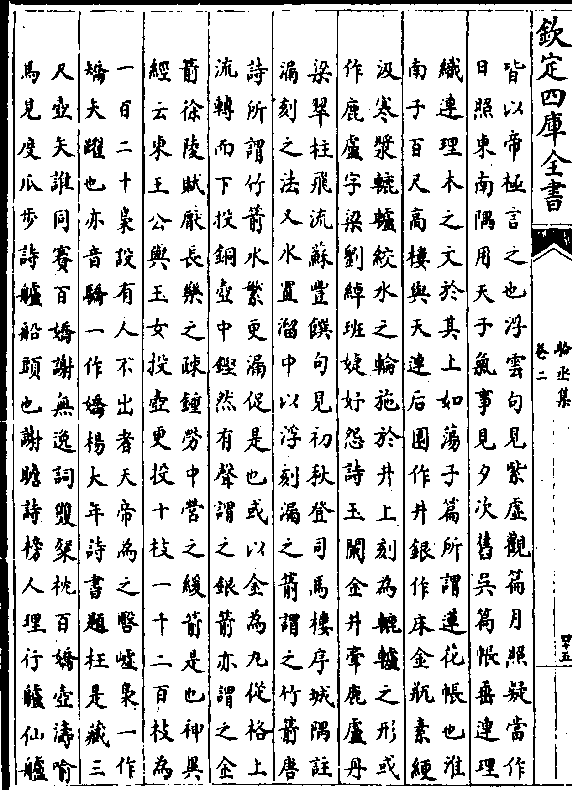 欽定四庫全書
卷二
四十五
皆以帝極言之也浮雲句見紫虛觀篇月照疑當作
日照東南隅用天子氣事見夕次舊吳篇帳垂連理
織連理木之文於其上如蕩子篇所謂蓮花帳也淮
南子百尺高樓與天連后園作井銀作床金瓶素綆
汲寒漿轆轤絞水之輪施於井上刻為轆轤之形或
作鹿盧字梁劉綽班婕妤怨詩玉闌金井牽鹿盧丹
梁翠柱飛流蘇豈饌句見初秋登司馬樓序城隅註
漏刻之法又水置溜中以浮刻漏之箭謂之竹箭唐
詩所謂竹箭水繁更漏促是也或以金為九從格上
流轉而下投銅壺中鏗然有聲謂之銀箭亦謂之金
箭徐陵賦厭長樂之疎鐘勞中營之緩箭是也神異
經云東王公與玉女投壺更投十枝一千二百枝為
一百二十梟設有人不出者天帝為之醫噓梟一作
矯夫躍也亦音驕一作嬌楊大年詩書題枉是藏三
尺壺矢誰同賽百嬌謝無逸詞毀琹枕百嬌壺濤喻
馬見度瓜步詩艫船頭也謝瞻詩榜人理行艫仙艫